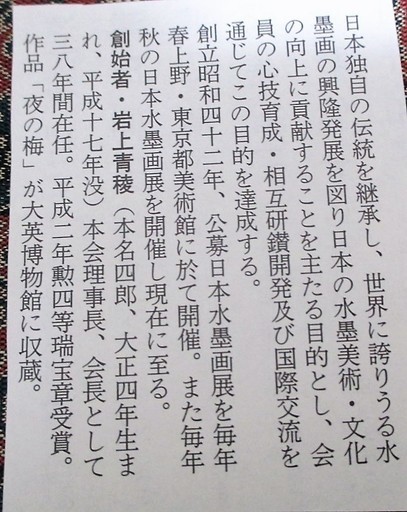 日本独自の伝統を継承し、世界に誇りうる水
墨画の興隆発展を図り日本の水墨美術・文化
の向上に貢献することを主たる目的とし、会
員の心技育成・相互研鑽開発及び国際交流を
通じてこの目的を達成する。
創立昭和四十二年、公募日本水墨画展を毎年
春上野・東京都美術館に於て開催。また毎年
秋の日本水墨画展を開催し現在に至る。
創始者・岩上青稜（本名四郎、大正四年生ま
れ、平成十七年没）本会理事長、会長として
三八年間在任。平成二年勲四等瑞宝章受賞。
作品「夜の梅」が大英博物館に収蔵。